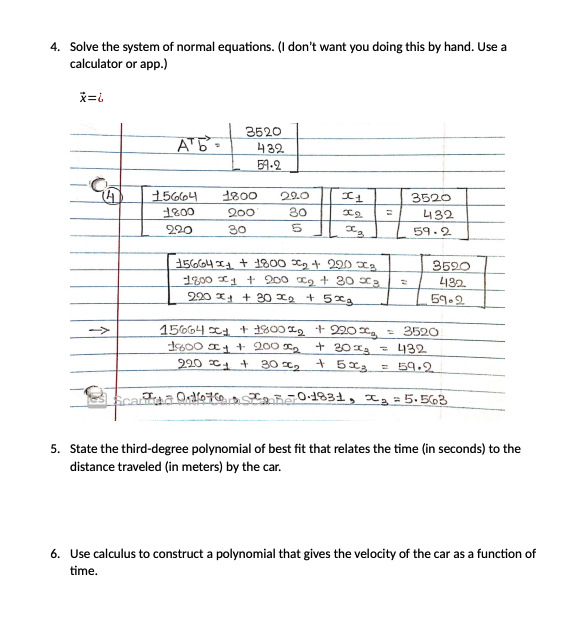 4. Solve the system of normal equations. (I don't want you doing this by hand. Use a
calculator or app.)
x⃗=¿
AᵀB⃗ = [3520
432
59.2]
④ [15664 1800 220] [x₁] [3520]
[1800 200 30] [x₂] = [432]
[220 30 5] [x₃] [59.2]
[15664x₁ + 1800x₂ + 220x₃] [3520]
[1800x₁ + 200x₂ + 30x₃] = [432]
[220x₁ + 30x₂ + 5x₃] [59.2]
→ 15664x₁ + 1800x₂ + 220x₃ = 3520
1800x₁ + 200x₂ + 30x₃ = 432
220x₁ + 30x₂ + 5x₃ = 59.2
x₁ = 0.1676, x₂ = -0.1831, x₃ = 5.563
5. State the third-degree polynomial of best fit that relates the time (in seconds) to the
distance traveled (in meters) by the car.
6. Use calculus to construct a polynomial that gives the velocity of the car as a function of
time.